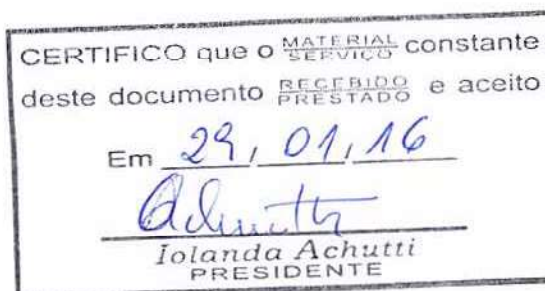 CERTIFICO que o MATERIAL/SERVIÇO constante
deste documento RECEBIDO/PRESTADO e aceito
Em 29, 01, 16
Achutti
Iolanda Achutti
PRESIDENTE